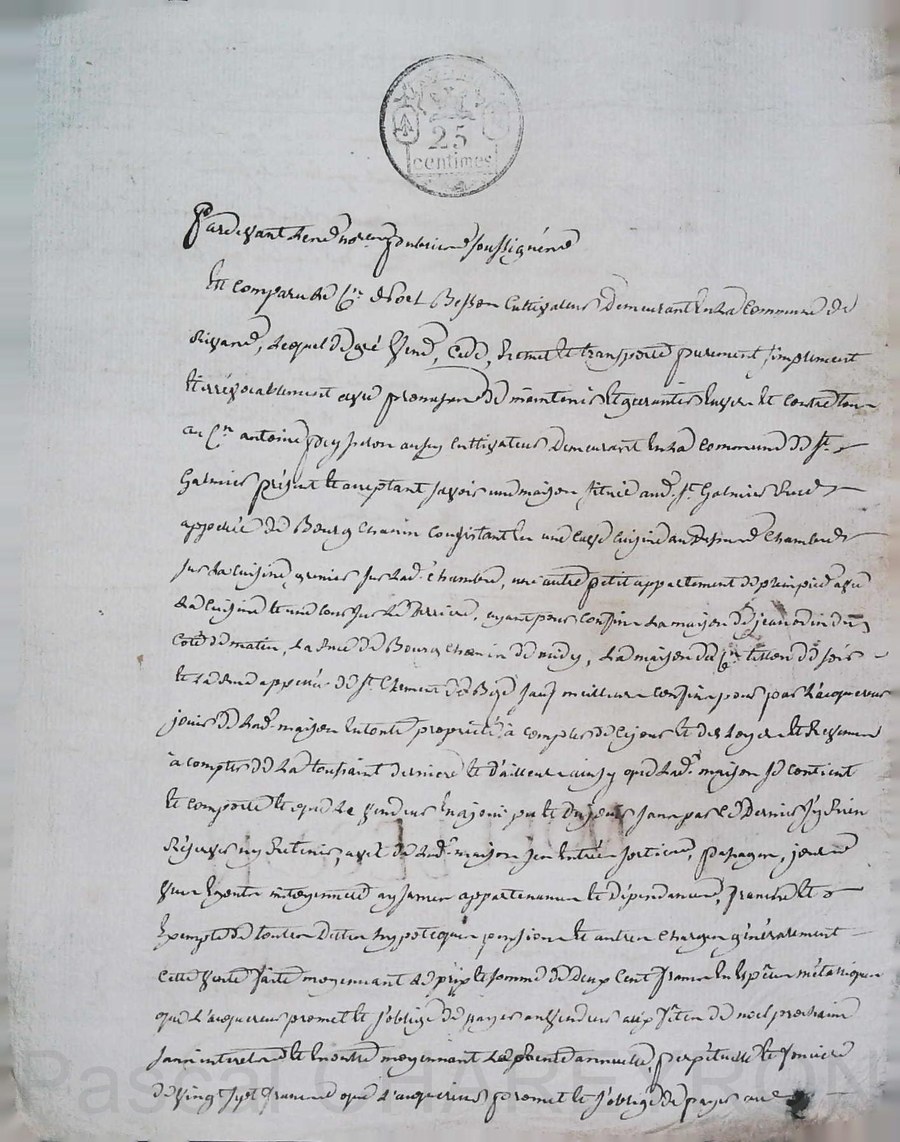 25
centimes
Pardevant le no.re public soussigné
Est comparu le C.n Besson Cultivateur demeurant en la commune de
lequel de gré vend, cede, remet et transporte purement, simplement
et irrévocablement avec promesse de maintenir et garantir envers et contre tous
au C.n antoine aussy Cultivateur demeurant en la commune de S.t
Galmier présent et acceptant savoir une maison située aud. S.t Galmier rue
appellée de Bourg Chanin Consistant en une cave cuisine au dessus chambre
sur la cuisine, grenier sur lad. chambre, une autre petit appartement de plein pied avec
la cuisine et une cour sur le derriere, ayant pour confins la maison de jean odin du
coté de matin, la rue de Bourg Chanin de midy, la maison du C.n de soir
et la rue appellée de S.t Clement de Bize sauf meilleurs confins pour par l'acquereur
jouir de lad. maison en toute propriété à compter de ce jour et des loyers et revenus
à compter de la toussaint derniere et d'ailleurs ainsy que lad. maison se contient
et comporte et que le vendeur en a joui pu et du jouir sans par ce dernier s'y rien
réserver ny retenir, avec de lad. maison ses entrées sorties, passages, jours
vues aysances appartenances et dépendances, franche et
exempte de toutes dettes hypotecques pensions et autres charges généralement
Cette vente faite moyennant le prix et somme de deux cent francs en espèces métalliques
que l'acquereur promet et s'oblige de payer au vendeur aux fêtes de noel prochaine
sans interet et en outre moyennant la rente annuelle, perpétuelle et fonciere
de vingt sept francs que l'acquereur promet et s'oblige de payer au
Pascal CHARETRON